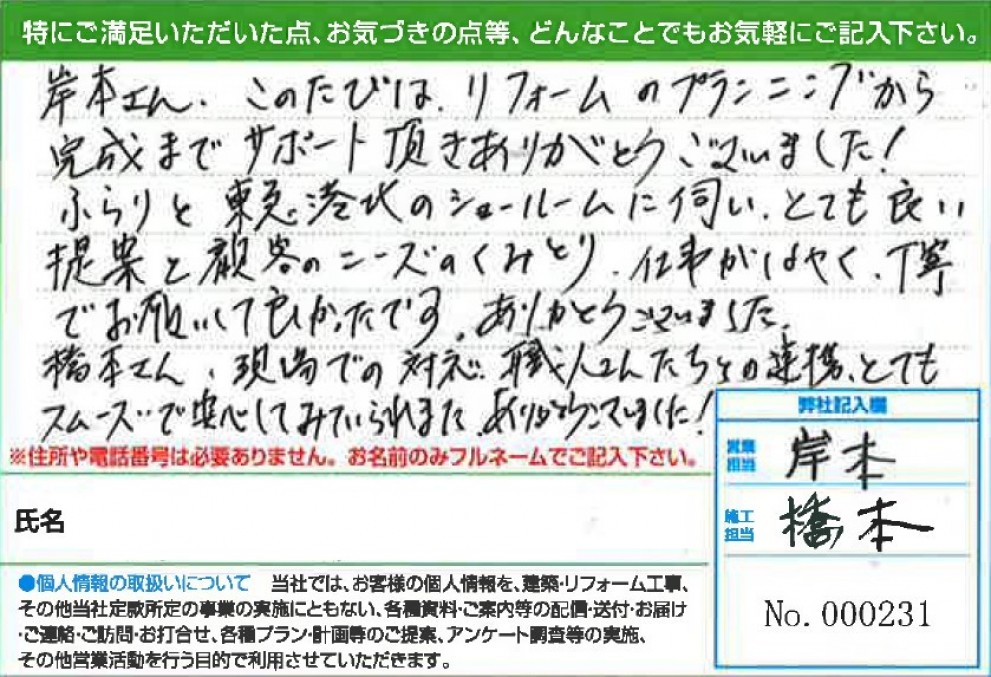 特にご満足いただいた点、お気づきの点等、どんなことでもお気軽にご記入下さい。
岸本さん、このたびは、リフォームのプランニングから
完成までサポート頂きありがとうございました!
ふらりと東急港北のショールームに伺い、とても良い
提案と顧客のニーズのくみとり、仕事がはやく、丁寧
でお願いして良かったです。ありがとうございました。
橋本さん、現場での対応、職人さんたちとの連携、とても
スムーズで安心してみていられました。ありがとうございました!
※住所や電話番号は必要ありません。お名前のみフルネームでご記入下さい。
氏名
弊社記入欄
営業担当 岸本
施工担当 橋本
No. 000231
●個人情報の取扱いについて 当社では、お客様の個人情報を、建築・リフォーム工事、
その他当社定款所定の事業の実施にともない、各種資料・ご案内等の配信・送付・お届け
・ご連絡・ご訪問・お打合せ、各種プラン・計画等のご提案、アンケート調査等の実施、
その他営業活動を行う目的で利用させていただきます。